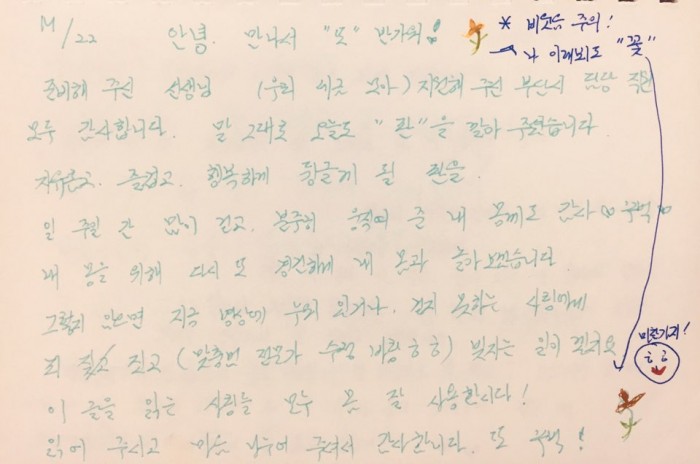 M/22 안녕. 만나서 "또" 반가워!
* 비웃음 주의!
나 이래뵈도 "꽃"
준비해 주신 선생님 (우리 지금 모아) 지원해 주신 부산시 담당 직원
모두 감사합니다. 말 그대로 오늘도 "판"을 깔아 주셨습니다.
자유롭고. 즐겁고. 행복하게 뒹굴게 될 판을.
일 주일 간 많이 걷고. 분주히 움직여 준 내 몸께도 감사 꾸벅
내 몸을 위해 다시 또 경건하게 내 몸과 놀아보겠습니다.
그렇지 않으면 지금 병상에 누워 있거나. 걷지 못하는 사람에게
죄 짓고 짓고 (맞춤법 전문가 수정 바람 ㅎㅎ) 빚지는 일이 될거요
미친가지!
ㅎㅎ
이 글을 읽는 사람들 모두 몸 잘 사용합시다!
읽어 주시고 마음 나누어 주셔서 감사합니다. 또 꾸벅!